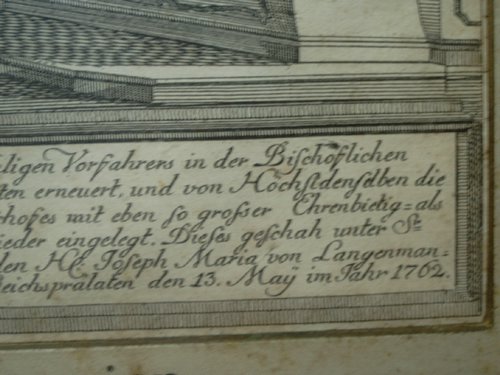 iligen Vorfahrers in der Bischöflichen
ten erneuert, und von Höchstdenselben die
chofes mit eben so grosser Ehrenbietig=als
ieder eingelegt. Dieses geschah unter Sr.
den HE. Joseph Maria von Langenman-
Reichsprälaten den 13. Maÿ im Jahr 1762.